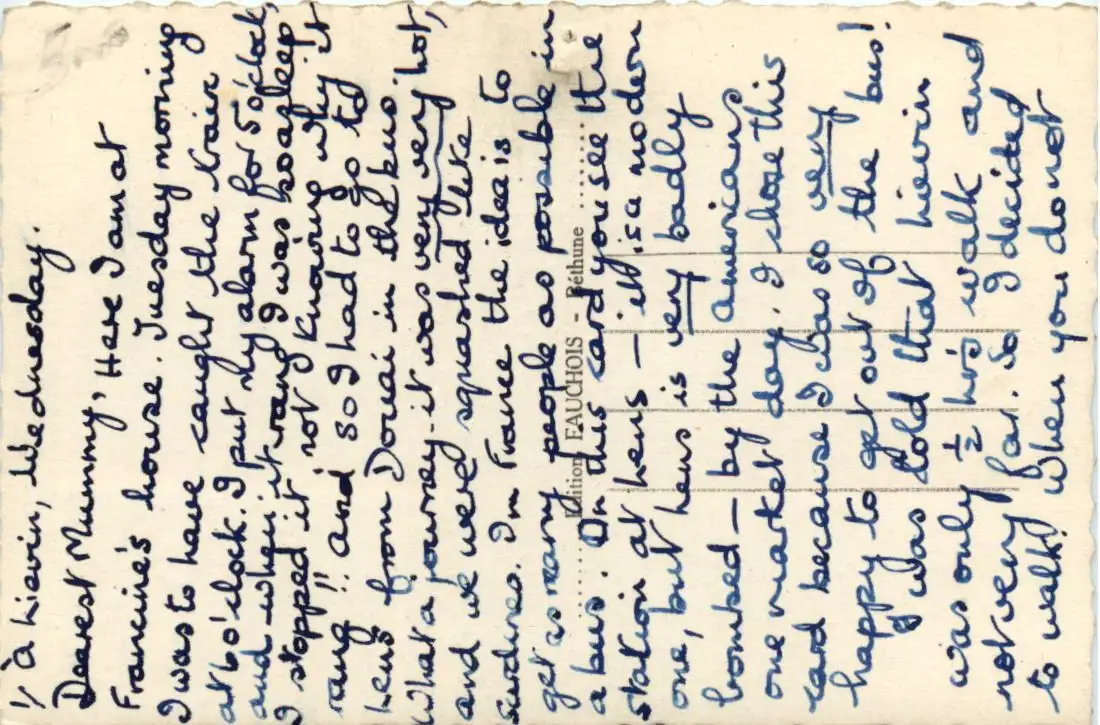 1/ à Liévin, Wednesday.
Dearest Mummy, Here I am at
Francine's house. Tuesday morning
I was to have caught the train
at 6 o'clock. I put my alarm for 5 o'clock,
and when it rang I was so asleep
I stopped it not knowing why it
rang!! and so I had to go to
Lens from Douai in the bus.
What a journey - it was very very hot,
and we were squashed like
sardines. In France the idea is to
get as many people as possible in
a bus. On this card you see the
station at Lens — it is a modern
one, but Lens is very badly
bombed — by the americans
one market day. I chose this
card because I was so very
happy to get out of the bus!
I was told that Liévin
was only ½ hr's walk and
not very far. So I decided
to walk! When you do not
Edition FAUCHOIS - Béthune